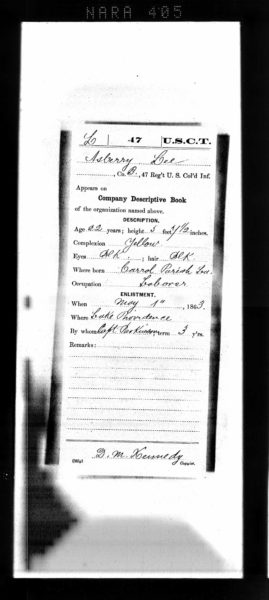 NARA 405
L 47 U.S.C.T.
Asberry Lee
, Co. B, 47 Reg't U. S. Col'd Inf.
Appears on
Company Descriptive Book
of the organization named above.
DESCRIPTION.
Age 22 years; height 5 feet 7½ inches.
Complexion Yellow
Eyes Blk.; hair Blk
Where born Carrol Parish Lou.
Occupation Laborer
ENLISTMENT.
When May 1", 1863.
Where Lake Providence
By whom Capt. term 3 y'rs.
Remarks:
D. M. Kennedy
Copyist.